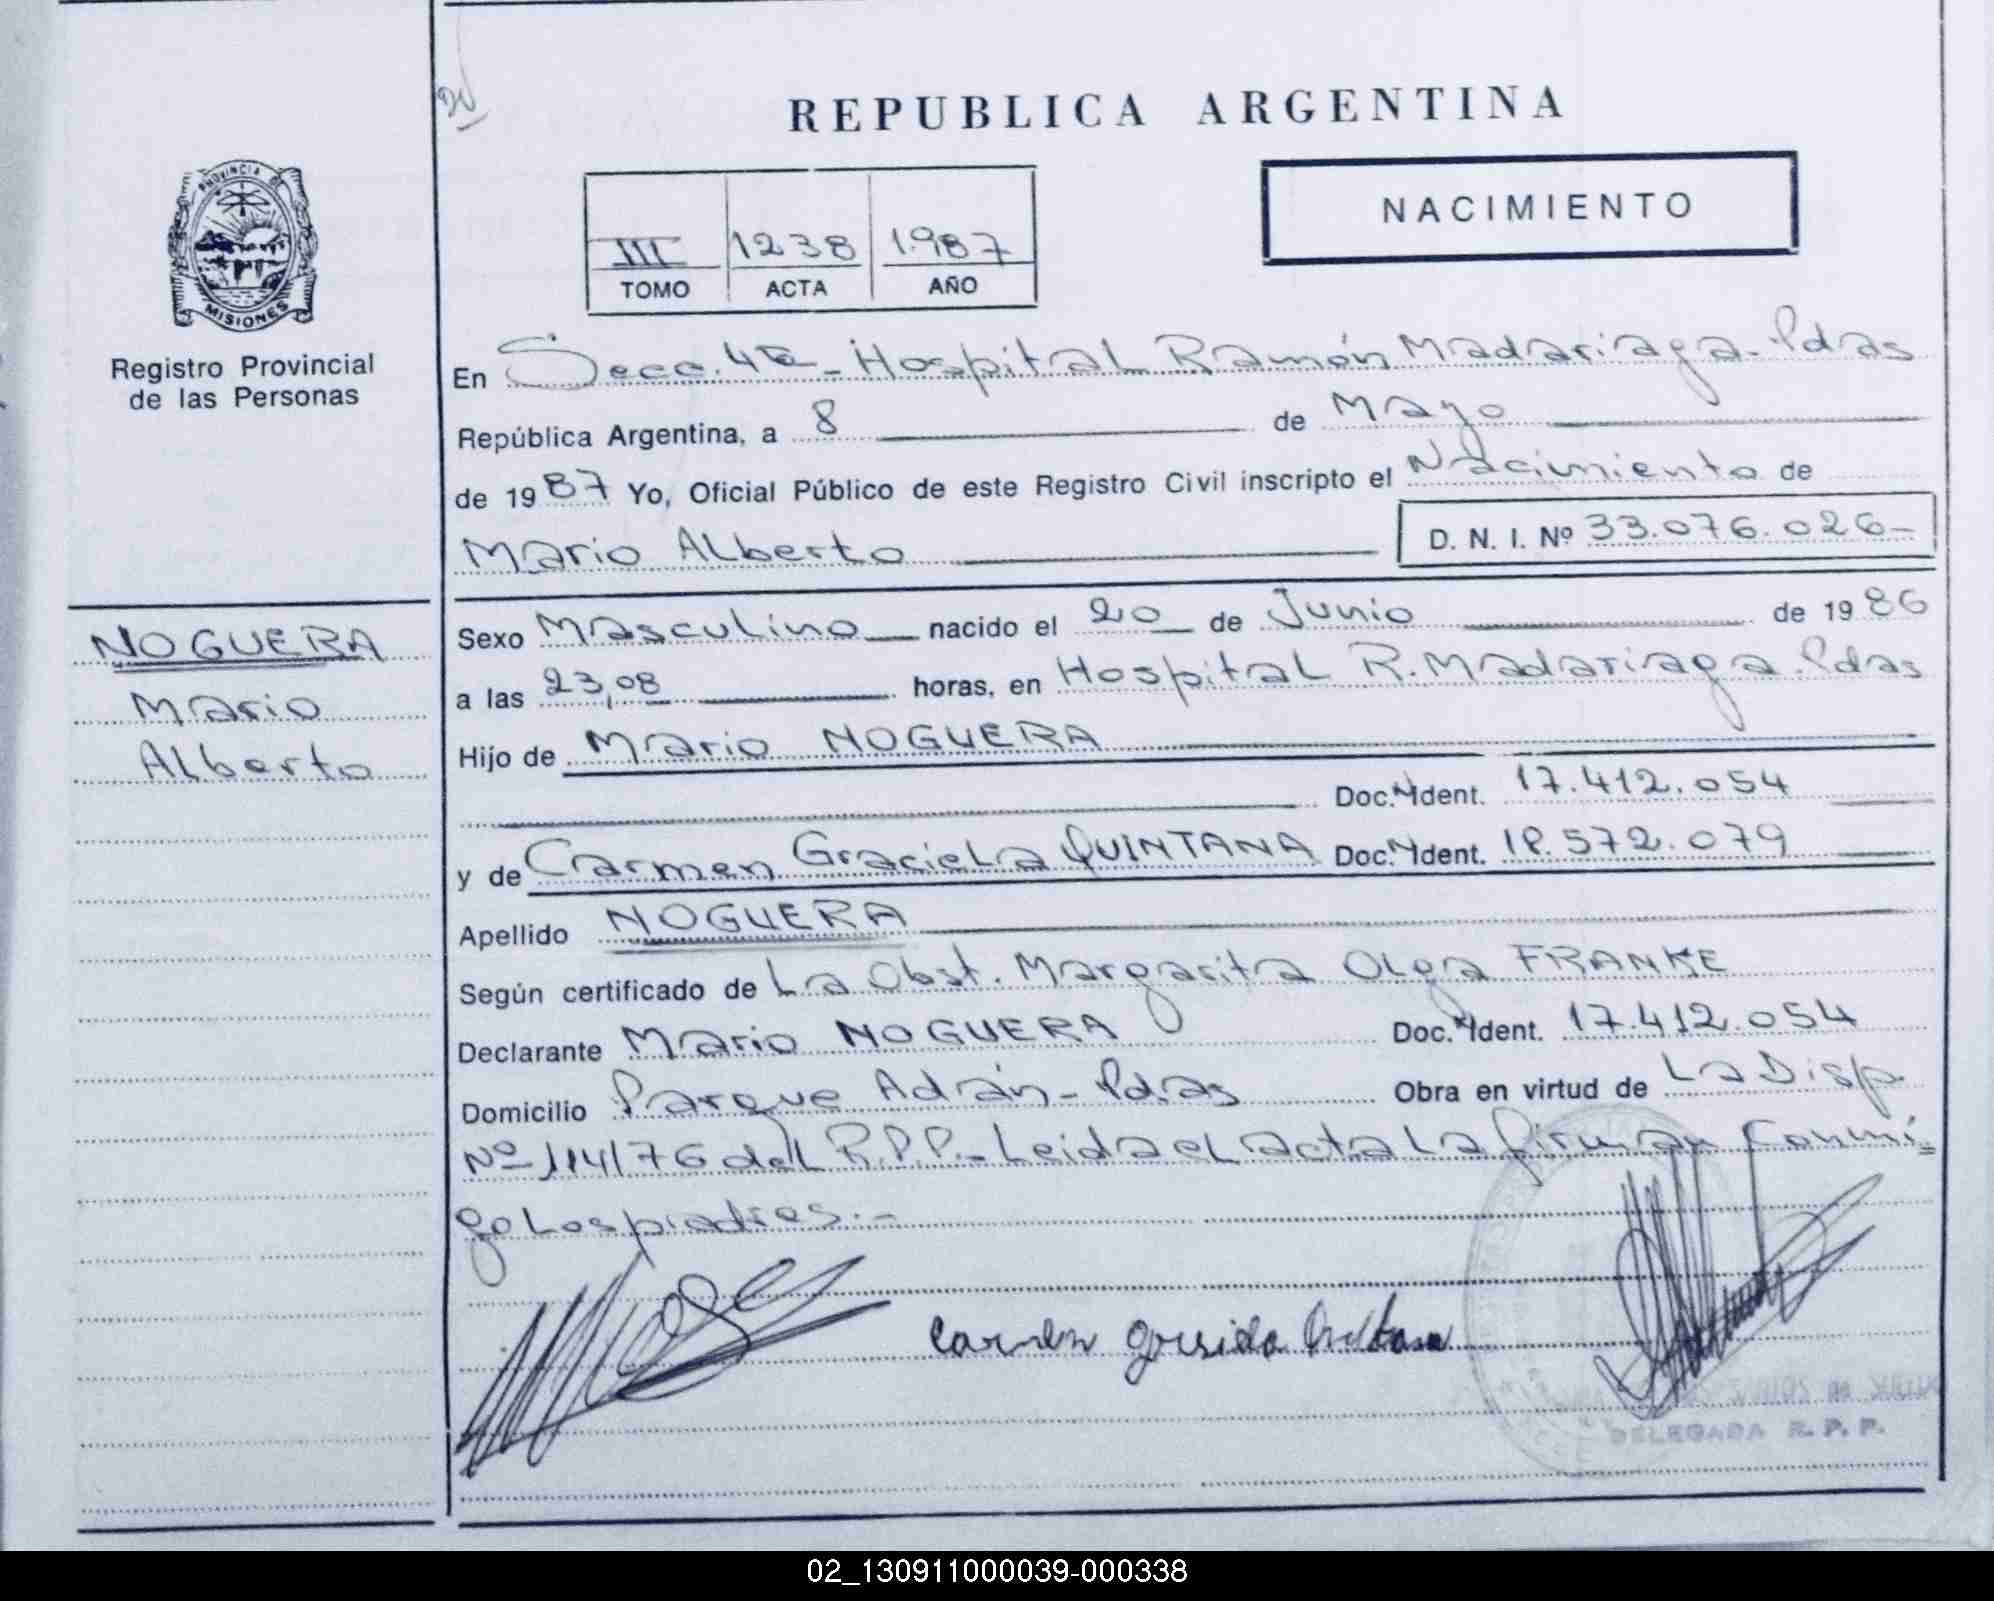 REPUBLICA ARGENTINA
NACIMIENTO
III 1238 1.987
TOMO ACTA AÑO
PROVINCIA DE
MISIONES
Registro Provincial
de las Personas
NOGUERA
Mario
Alberto
En Secc. 4ta - Hospital Ramón Madariaga - Pdas
República Argentina, a 8 de Mayo
de 1987 Yo, Oficial Público de este Registro Civil inscripto el Nacimiento de
Mario Alberto D. N. I. Nº 33.076.026-
Sexo Masculino nacido el 20 de Junio de 1986
a las 23,08 horas, en Hospital R. Madariaga. Pdas
Hijo de Mario NOGUERA
Doc. Ident. 17.412.054
y de Carmen Graciela QUINTANA Doc. Ident. 18.572.079
Apellido NOGUERA
Según certificado de La Obst. Margarita Olga FRANKE
Declarante Mario NOGUERA Doc. Ident. 17.412.054
Domicilio Parque Adán - Pdas Obra en virtud de La Disp.
Nº 114/76 del R.P.P.- Leida el acta la firman conmi=
go los padres.-
DELEGADA R. P. P.
02_130911000039-000338